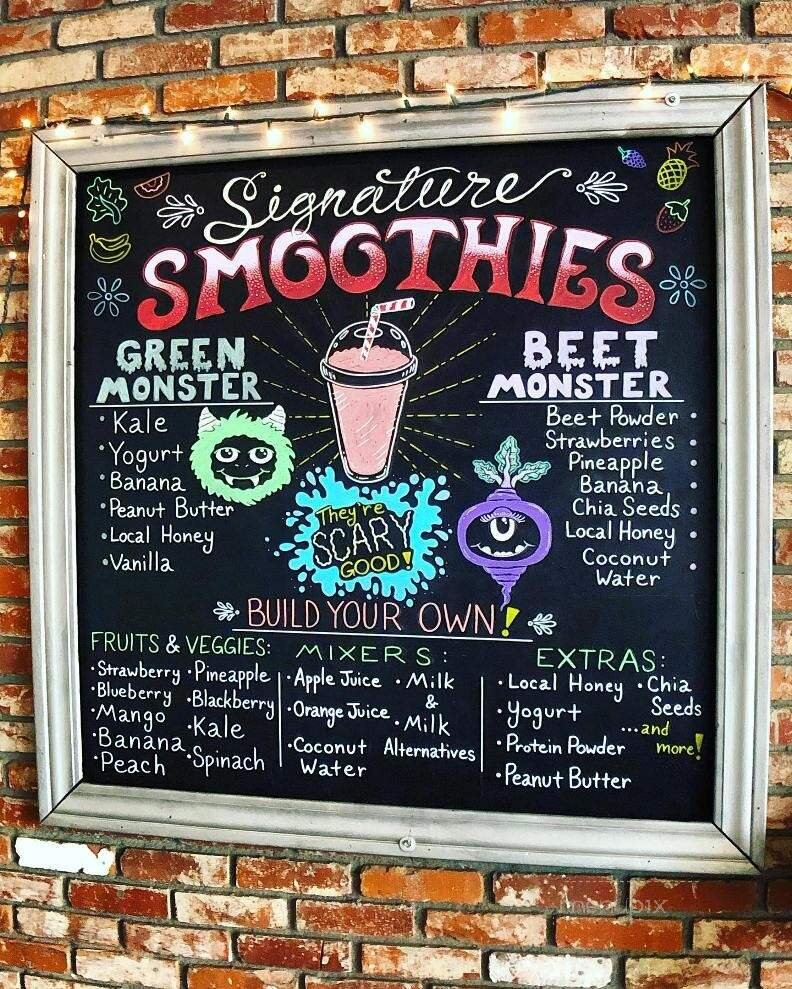 Signature
SMOOTHIES
GREEN
MONSTER
• Kale
• Yogurt
• Banana
• Peanut Butter
• Local Honey
• Vanilla
They're
SCARY
GOOD!
BEET
MONSTER
Beet Powder •
Strawberries •
Pineapple •
Banana •
Chia Seeds •
Local Honey •
Coconut •
Water
BUILD YOUR OWN!
FRUITS & VEGGIES:
• Strawberry • Pineapple
• Blueberry • Blackberry
• Mango • Kale
• Banana • Spinach
• Peach
MIXERS:
• Apple Juice • Milk
&
• Orange Juice • Milk
• Coconut Alternatives
Water
EXTRAS:
• Local Honey • Chia
Seeds
• Yogurt
...and
• Protein Powder more!
• Peanut Butter